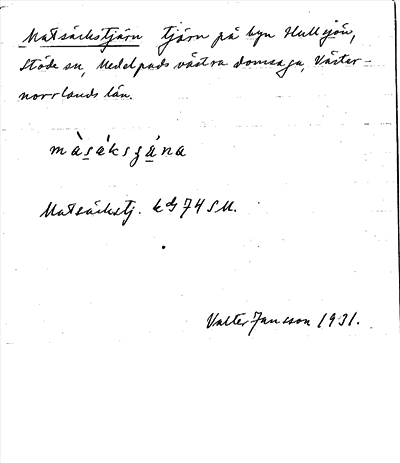 Matsäckstjärn tjärn på byn Hullsjön,
Stöde sn, Medelpads västra domsaga, Väster-
norrlands län.
màsákszána
Matsäckstj. kbl 74 SM.
Valter Jansson 1931.